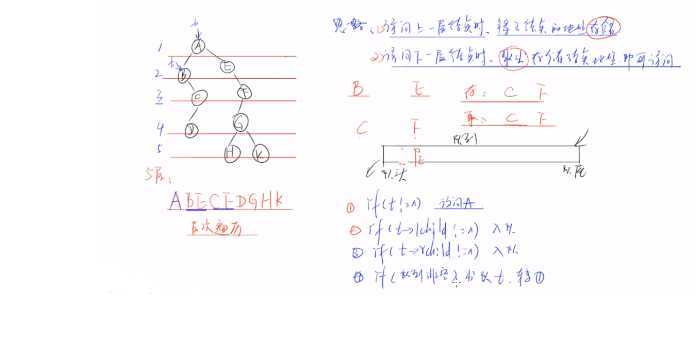 t
1 A
t
2 B E
3 C F
4 D G
5 H K
5层:
ABECFDGHK
层次遍历
思路: 1) 访问上一层结点时, 将子结点的地址存储
2) 访问下一层结点时, 取出 结点地址 即可访问
B E 存: C F
C F 取: C F
队列
E
队头 队尾
① if(t!=∧) 访问A
② if(t->lchild!=∧) 入队
③ if(t->rchild!=∧) 入队
④ if(队列非空) 出队 t, 转①